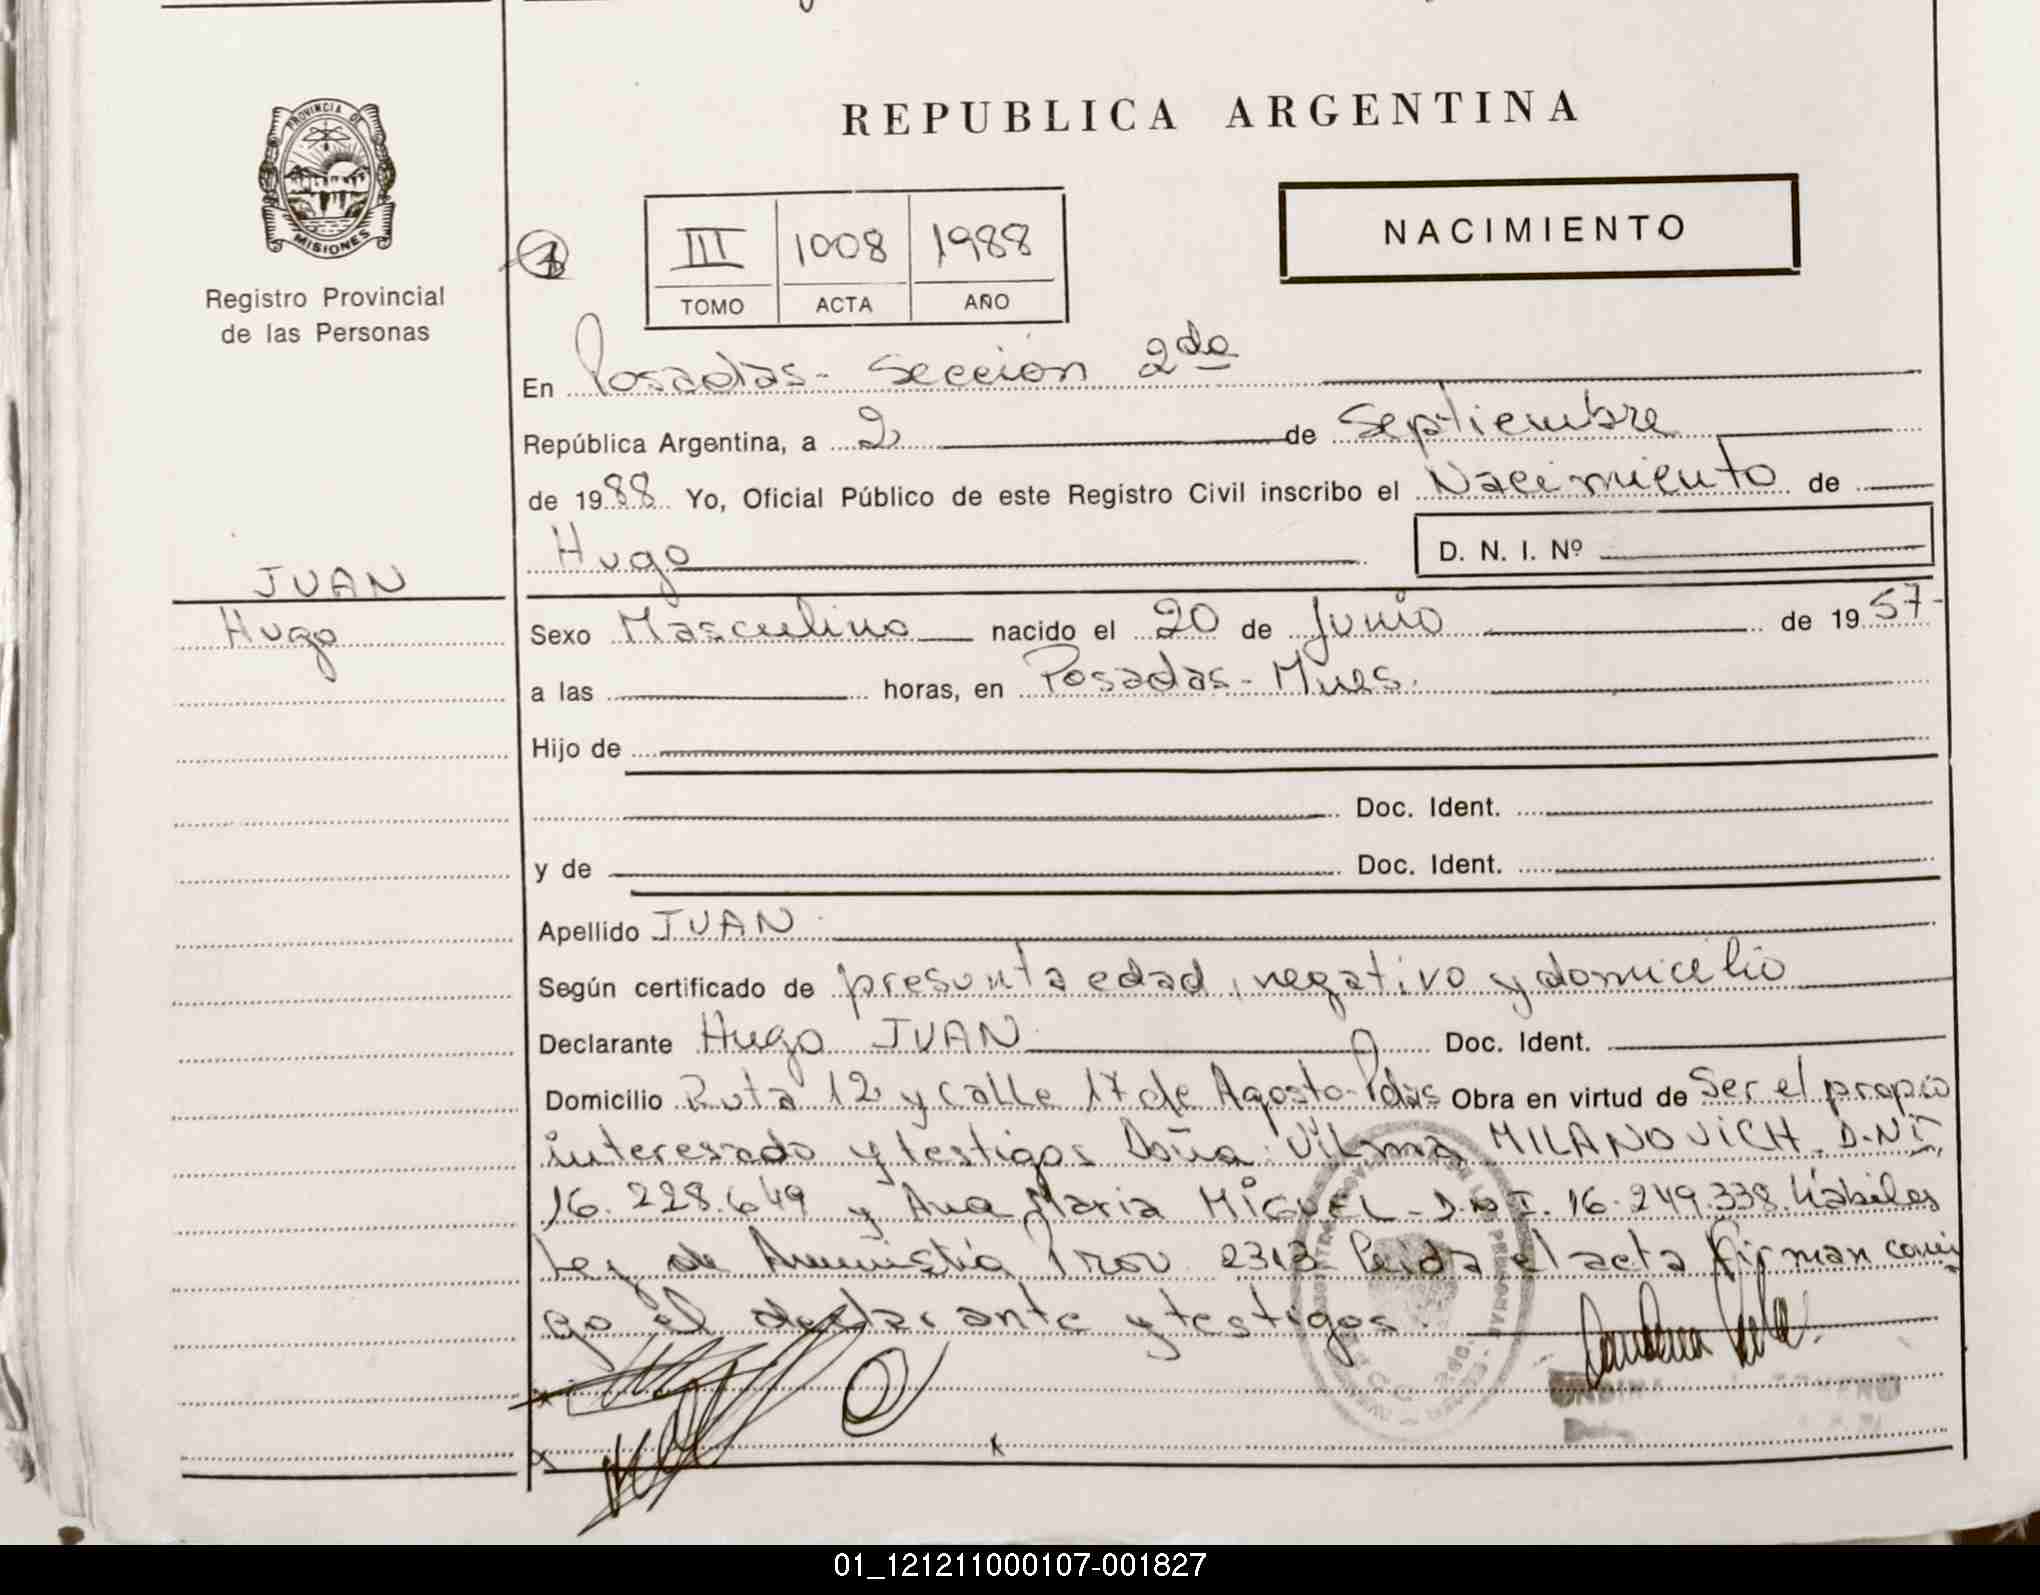 PROVINCIA DE
MISIONES
Registro Provincial
de las Personas
JUAN
Hugo
REPUBLICA ARGENTINA
NACIMIENTO
III 1008 1988
TOMO ACTA AÑO
En Posadas - Sección 2da
República Argentina, a 2 de Septiembre
de 1988 Yo, Oficial Público de este Registro Civil inscribo el Nacimiento de
Hugo D. N. I. Nº
Sexo Masculino nacido el 20 de Junio de 1957-
a las horas, en Posadas - Mnes.
Hijo de
Doc. Ident.
y de Doc. Ident.
Apellido JUAN
Según certificado de presunta edad, negativo y domicilio
Declarante Hugo JUAN Doc. Ident.
Domicilio Ruta 12 y calle 17 de Agosto - Pdas Obra en virtud de Ser el propio
interesado y testigos Doña: Vilma MILANOVICH. D.N.I.
16.228.649 y Ana Maria MIGUEL - D.N.I. 16.249.338. hábiles
Ley de Amnistía Prov. 2313 leida el acta firman conmi
go el declarante y testigos.
01_121211000107-001827